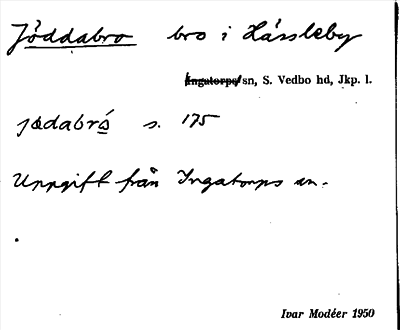 Jöddabro bro i Hässleby
Ingatorps sn, S. Vedbo hd, Jkp. l.
jødabró s. 175
Uppgift från Ingatorps sn.
Ivar Modéer 1950